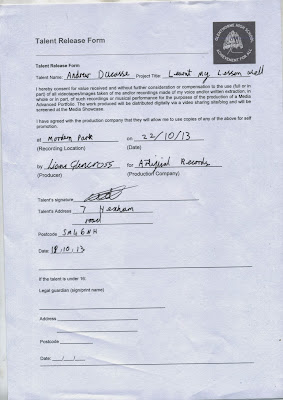 GLENTHORNE HIGH SCHOOL
ACHIEVEMENT FOR ALL
Talent Release Form
Talent Release Form
Talent Name: Andrew Ducasse Project Title: Learnt My Lesson Well
I hereby consent for value received and without further consideration or compensation to the use (full or in
part) of all videotapes/images taken of me and/or recordings made of my voice and/or written extraction, in
whole or in part, of such recordings or musical performance for the purposes of the production of a Media
Advanced Portfolio. The work produced will be distributed digitally via a video sharing site/blog and will be
screened at the Media Showcase.
I have agreed with the production company that they will allow me to use copies of any of the above for self
promotion.
at Morden Park on 22/10/13
(Recording Location) (Date)
by Liane Glencross for Records
(Producer) (Production Company)
Talent's signature
Talent's Address 7 Hexham
road
Postcode SM4 6NH
Date: 18.10.13
If the talent is under 16:
Legal guardian (sign/print name)
Address
Postcode
Date: __/__/__